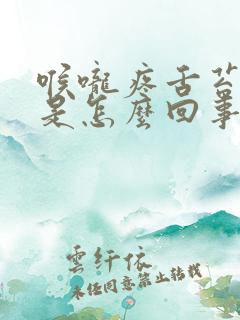 喉嚨疼舌苔
是怎麼回事
雲纤依
未经同意禁止转载